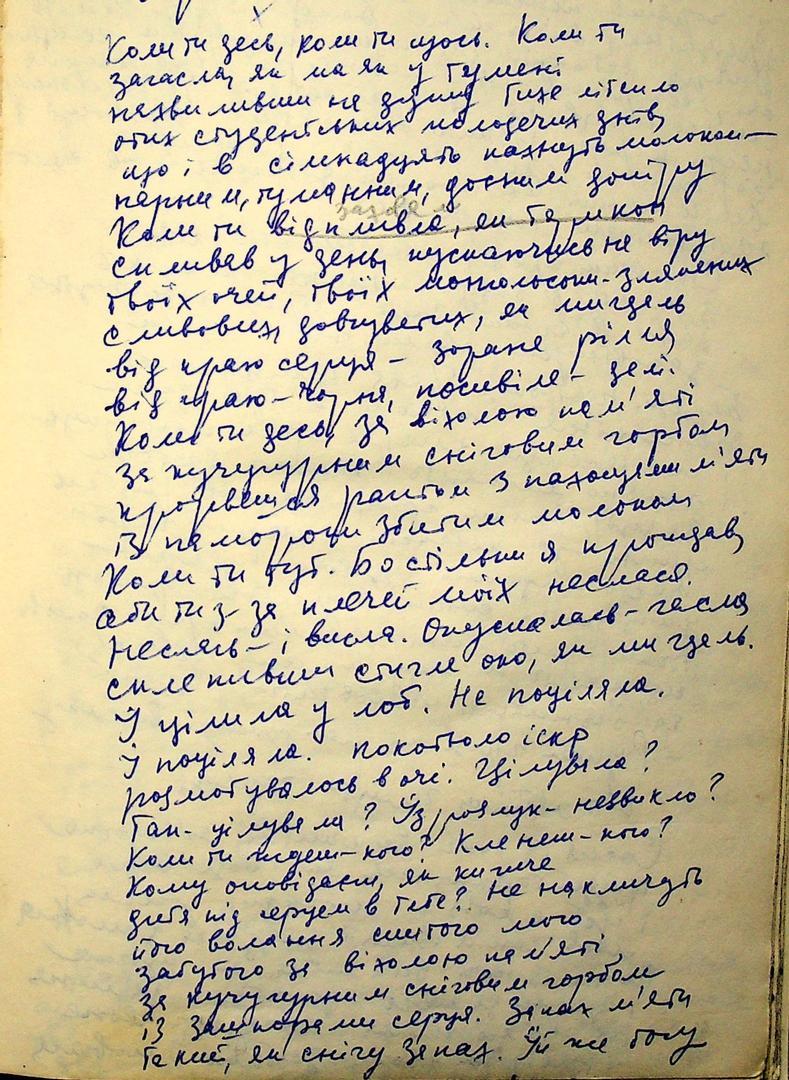 Коли ти десь, коли ти щось. Коли ти
загасла, як маяк у тумані
нахвиливши на душу тихе літепло
отих студентських молодечих днів,
що і в сімнадцять пахнуть молоком —
парним, туманним, досхим допіру
Коли ти відпливла, як
спливав у день, пускаючись на віру
твоїх очей, твоїх монгольських
сливових, довгуватих, як мигдаль
від краю серця — зоране рілля
від краю — чорна, посивіла — далі.
Коли ти десь, за віхолою пам'яті
за кучугурним сніговим горбом
прорвешся раптом з пахощами м'яти
із паморочі збитим молоком
Коли ти тут. Бо стільки я прощав,
аби ти з-за плечей моїх неслася.
Неслась — і висла. Опускалась — гасла
склепивши стигле око, як мигдаль.
Й цілила у лоб. Не поціляла.
Й поціляла. покотьоло іскр
розмотувалось в очі. Цілувала?
Так — цілувала? Із розлук — незвикло?
Коли ти ждеш — кого? Клянеш — кого?
Кому оповідаєш, як кигиче
дитя під серцем в тебе? Не накличуть
його волання смутого мого
забутого за віхолою пам'яті,
за кучугурним сніговим горбом
із зашпорами серця. Запах м'яти
такий, як снігу запах. Й же тому